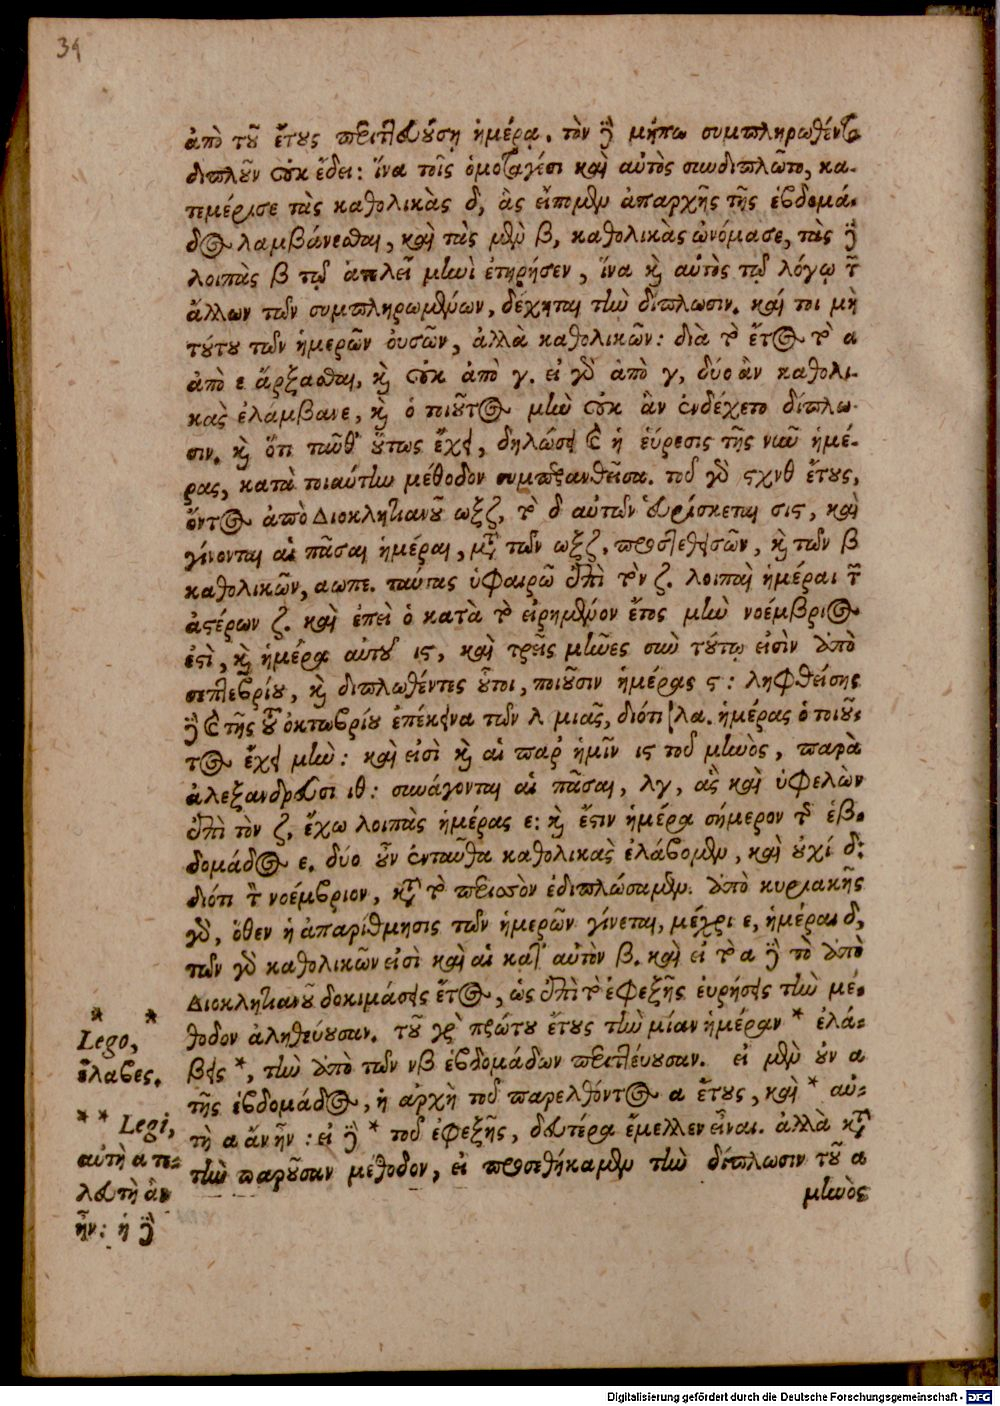 39
ἀπὸ τοῦ ἔτους περιττευούσῃ ἡμέρᾳ. τὸν δὲ μήπω συμπληρωθέντα
διπλοῦν οὐκ ἔδει: ἵνα τοῖς ὁμοταγέσι καὶ αὐτὸς συνδιπλῶτο, κα-
τεμέρισε τὰς καθολικὰς δ, ἃς εἴπομεν ἀπαρχῆς τῆς ἑβδομά-
δος λαμβάνεσθαι, καὶ τὰς μὲν β, καθολικὰς ὠνόμασε, τὰς δὲ
λοιπὰς β τῷ ἁπλεῖ μηνὶ ἐτηρήσεν, ἵνα καὶ αὐτὸς τῷ λόγῳ τῶν
ἄλλων τῶν συμπληρωμένων, δέχηται τὴν δίπλωσιν. καί τοι μὴ
τούτου τῶν ἡμερῶν οὐσῶν, ἀλλὰ καθολικῶν: διὰ τὸ ἔτος τὸ α
ἀπὸ ε ἄρξασθαι, καὶ οὐκ ἀπὸ γ. εἰ γὰρ ἀπὸ γ, δύο ἂν καθολι-
κὰς ἐλάμβανε, καὶ ὁ τοιοῦτος μὴν οὐκ ἂν ἐνδέχετο δίπλω-
σιν. καὶ ὅτι ταῦθ' οὕτως ἔχει, δηλώσει καὶ ἡ εὕρεσις τῆς νῦν ἡμέ-
ρας, κατὰ τοιαύτην μέθοδον συμπερανθεῖσα. τοῦ γὰρ ϛχνθ ἔτους,
ὄντος ἀπὸ Διοκλητιανοῦ ωξζ, τὸ δ αὐτῶν εὑρίσκεται σιϛ, καὶ
γίνονται αἱ πᾶσαι ἡμέραι, μετὰ τῶν ωξζ, προστεθεισῶν, καὶ τῶν β
καθολικῶν, αωπε. ταύτας ὑφαιρῶ ἐπὶ τὸν ζ. λοιπαὶ ἡμέραι τῶν
ἀστέρων ζ. καὶ ἐπεὶ ὁ κατὰ τὸ εἰρημένον ἔτος μὴν νοέμβριος
ἐστὶ, καὶ ἡμέρα αὐτοῦ ιϛ, καὶ τρεῖς μῆνες σὺν τούτῳ εἰσὶν ἀπὸ
σεπτεβρίου, καὶ διπλωθέντες οὗτοι, ποιοῦσιν ἡμέρας ϛ: ληφθείσης
δὲ καὶ τῆς τοῦ ὀκτωβρίου ἐπέκεινα τῶν λ μιᾶς, διότι λα. ἡμέρας ὁ τοιοῦ-
τος ἔχει μὴν: καὶ εἰσὶ καὶ αἱ παρ' ἡμῖν ιϛ τοῦ μηνὸς, παρὰ
ἀλεξανδρεῦσι ιθ: συνάγονται αἱ πᾶσαι, λγ, ἃς καὶ ὑφελὼν
ἐπὶ τὸν ζ, ἔχω λοιπὰς ἡμέρας ε: καὶ ἔστιν ἡμέρα σήμερον τῆς ἑβ-
δομάδος ε. δύο οὖν ἐνταῦθα καθολικὰς ἐλάβομεν, καὶ οὐχί δ:
διότι τὸν νοέμβριον, κατὰ τὸ περισσὸν ἐδιπλώσαμεν. ἀπὸ κυριακῆς
γὰρ, ὅθεν ἡ ἀπαρίθμησις τῶν ἡμερῶν γίνεται, μέχρι ε, ἡμέραι δ,
τῶν γὰρ καθολικῶν εἰσὶ καὶ αἱ κατ' αὐτὸν β. καὶ εἰ τὸ α δὲ τὸ ἀπὸ
Διοκλητιανοῦ δοκιμάσεις ἔτος, ὡς ἐπὶ τὸ ἐφεξῆς εὑρήσεις τὴν μέ-
θοδον ἀληθεύουσαν. τοῦ γὰρ πρώτου ἔτους τὴν μίαν ἡμέραν * ἐλά-
βεις *, τὴν ἀπὸ τῶν νβ ἑβδομάδων περιττεύουσαν. εἰ μὲν οὖν α
τῆς ἑβδομάδος, ἡ ἀρχὴ τοῦ παρελθόντος α ἔτους, καὶ * αὐ-
τὴ α ἄν ἦν: εἰ δὲ * τοῦ ἐφεξῆς, δευτέρα ἔμελλεν εἶναι. ἀλλὰ κατὰ
τὴν παροῦσαν μέθοδον, εἰ προσεθήκαμεν τὴν δίπλωσιν τοῦ α
μηνὸς
* *
Lego,
ἔλαβες.
* * Legi,
αὐτὴ α τε-
λευτὴ ἂν
ἦν: ἡ δὲ
Digitalisierung gefördert durch die Deutsche Forschungsgemeinschaft - DFG